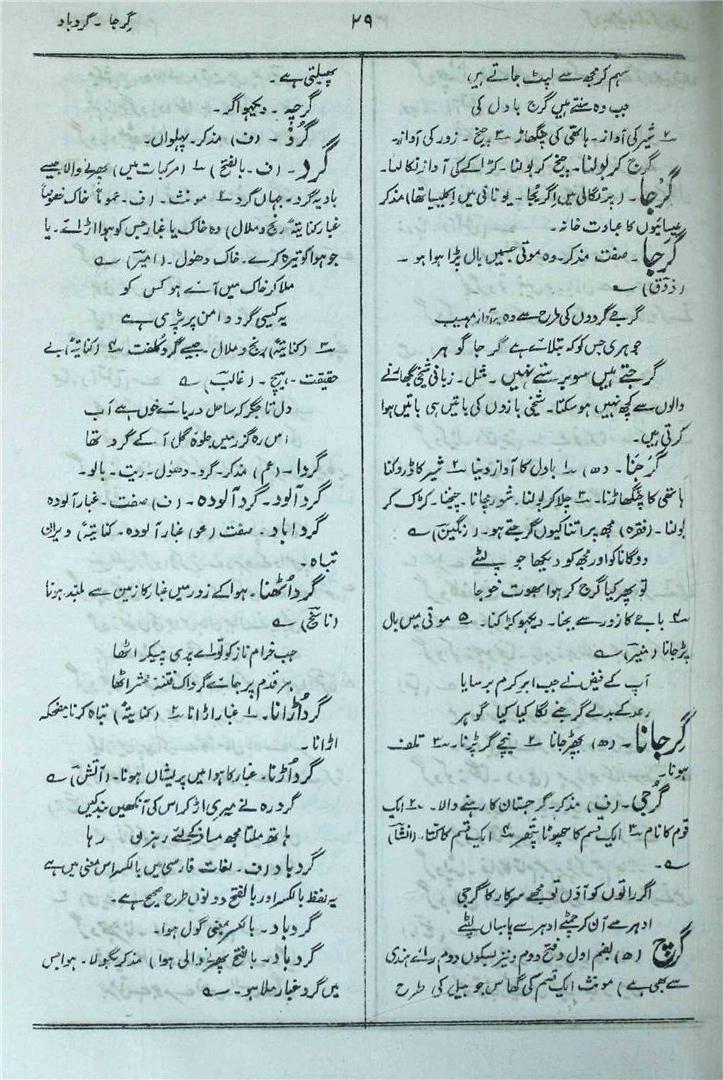 گِرجا۔گردباد
۲۹
سہم کر مجھ سے لپٹ جاتے ہیں
جب وہ سنتے ہیں گرج بادل کی
۲؎ شیر کی آواز۔ ہاتھی کی چنگھاڑ ۳؎ چیخ۔ زور کی آواز۔
گرج کر بولنا۔ چیخ کر بولنا۔ کڑاکے کی آواز نکالنا۔
گِرجا۔ (پرتگالی میں اگریجا۔ یونانی میں اکلیسیا تھا) مذکر
عیسائیوں کا عبادت خانہ۔
گرجا۔ صفت مذکر۔ وہ موتی جسمیں بال پڑا ہوا ہو۔
(ذوق) ؎
گرجے گردوں کی طرح سے وہ بہ آواز مہیب
جوہری جس کو کہ بتلائے ہے گرجا گوہر
گرجتے ہیں سو برستے نہیں۔ مثل۔ زبانی شیخی بگھارنے
والوں سے کچھ نہیں ہوسکتا۔ شیخی بازوں کی باتیں ہی باتیں ہوا
کرتی ہیں۔
گرجنا۔ (ھ) ۱؎ بادل کا آواز دینا ۲؎ شیر کا ڈروکنا
ہاتھی کا چنگھاڑنا۔ ۳؎ چلا کر بولنا۔ شور مچانا۔ چیخنا۔ کڑک کر
بولنا۔ (فقرہ) مجھ پر اتنا کیوں گرجتے ہو۔ (رنگین) ؎
دوگانا کو اور مجھ کو دیکھا جو لپٹے
تو پھر کیا گرج کر ہوا بھوت خوجا
۴؎ باجے کا زور سے بجنا۔ دیکھو کڑکنا۔ ۵؎ موتی میں بال
پڑجانا (منیر) ؎
آپ کے فیض نے جب ابر کرم برسایا
رعد کے بدلے گرجنے لگا کیا کیا گوہر
گِر جانا۔ (ھ) ۱؎ بچھڑ جانا ۲؎ نیچے گر پڑنا۔ ۳؎ تلف
ہونا۔
گُرجی۔ (ف) مذکر۔ گرجستان کا رہنے والا۔ ۲؎ ایک
قوم کا نام ۳؎ ایک قسم کا چھوٹا پتھر ۴؎ ایک قسم کا کتا۔ (انشا)
؎
اگر راتوں کو آؤں تو مجھے سرکار کا گرجی
ادھر سے آن کر چمٹے ادھر سے پاسباں لپٹے
گرچ (ھ) بضم اول و فتح دوم و نیز بسکون دوم رائے ہندی
سے بھی ہے) مونث ایک قسم کی گھاس جو بیل کی طرح
پھیلتی ہے۔
گرچہ۔ دیکھو اگر۔
گُرد۔ (ف) مذکر۔ پہلوان۔
گرد۔ (ف۔ بالفتح) ۱؎ (مرکبات میں) پھرنے والا جیسے
بادیہ گرد۔ جہاں گرد ۲؎ مونث۔ (ف۔ عموماً خاک خصوصاً
غبار کنایتہً رنج و ملال) وہ خاک یا غبار جس کو ہوا اڑائے۔ یا
جو ہوا کو تیرہ کرے۔ خاک دھول۔ (امیر) ؎
ملاکر خاک میں آئے ہو کس کو
یہ کیسی گرد دامن پر پڑی ہے
۳؎ (کنایتہً) رنج و ملال جیسے گرد کلفت ۴؎ (کنایتہً) بے
حقیقت، ہیچ۔ (غالب) ؎
دل تا جگر کہ ساحل دریائے خوں ہے اب
اس رہ گزر میں جلوۂ گل آگے گرد تھا
گردا۔ (عم) مذکر۔ گرد۔ دھول۔ ریت۔ بالو۔
گرد آلود۔ گرد آلودہ۔ (ف) صفت۔ غبار آلودہ
گرداباد۔ صفت (عو) غبار آلودہ۔ کنایتہً ویران
تباہ۔
گرد اُٹھنا۔ ہوا کے زور میں غبار کا زمین سے بلند ہونا
(ناسخ) ؎
جب خرام ناز کو تو اے پری پیکر اٹھا
ہر قدم پر جائے گرد اک فتنۂ محشر اٹھا
گرد اُڑانا۔ ۱؎ غبار اڑانا ۲؎ (کنایتہً) تباہ کرنا مضحکہ
اڑانا۔
گرد اُڑنا۔ غبار کا ہوا میں پریشاں ہونا۔ (آتش) ؎
گرد رہ نے میری اڑ کر اس کی آنکھیں بند کیں
ہاتھ ملتا مجھ مسافر کے لئے رہزن رہا
گردباد (ف۔ لغات فارسی میں بالکسر اس معنی میں ہے
یہ لفظ بالکسر اور بالفتح دونوں طرح صحیح ہے۔
گردباد۔ بالکسر بمعنی گول ہوا۔
گردباد۔ بالفتح پھرنے والی ہوا) مذکر بگولا۔ ہوا جس
میں گرد غبار ملا ہو۔ ؎